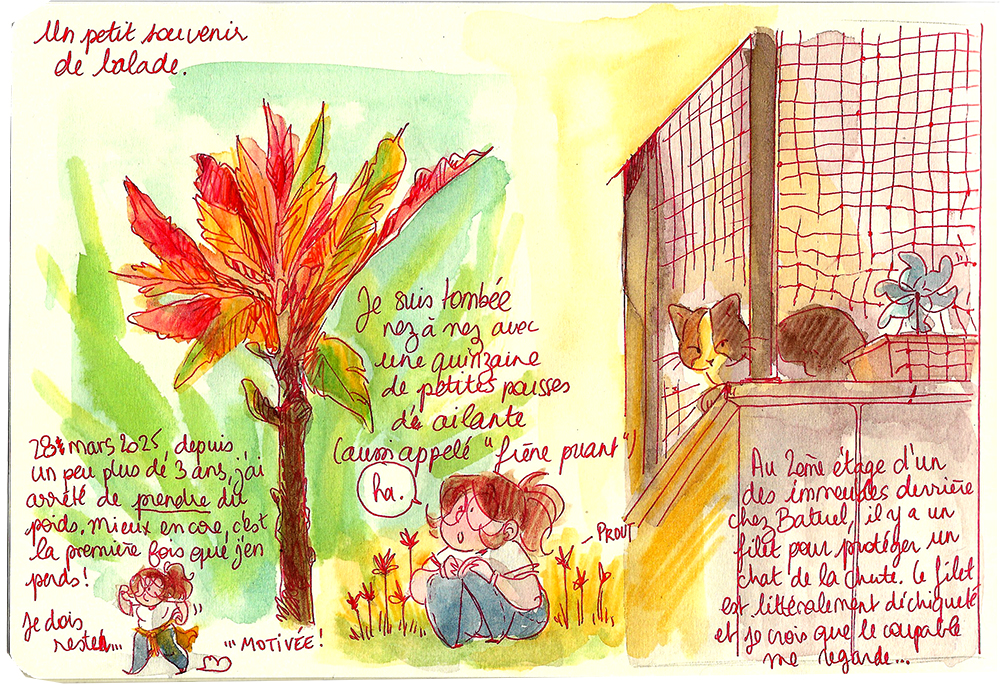 Un petit souvenir
de balade.
Je suis tombée
nez à nez avec
une quinzaine
de petites pousses
d'ailante
(aussi appelé "frêne puant")
ha.
PROUT
28 mars 2025, depuis
un peu plus de 3 ans, j'ai
arrêté de prendre du
poids. Mieux encore, c'est
la première fois que j'en
perds!
Je dois
rester...
... MOTIVÉE!
Au 2ème étage d'un
des immeubles derrière
chez Batuel, il y a un
filet pour protéger un
chat de la chute. Le filet
est littéralement déchiqueté
et je crois que le coupable
me regarde...